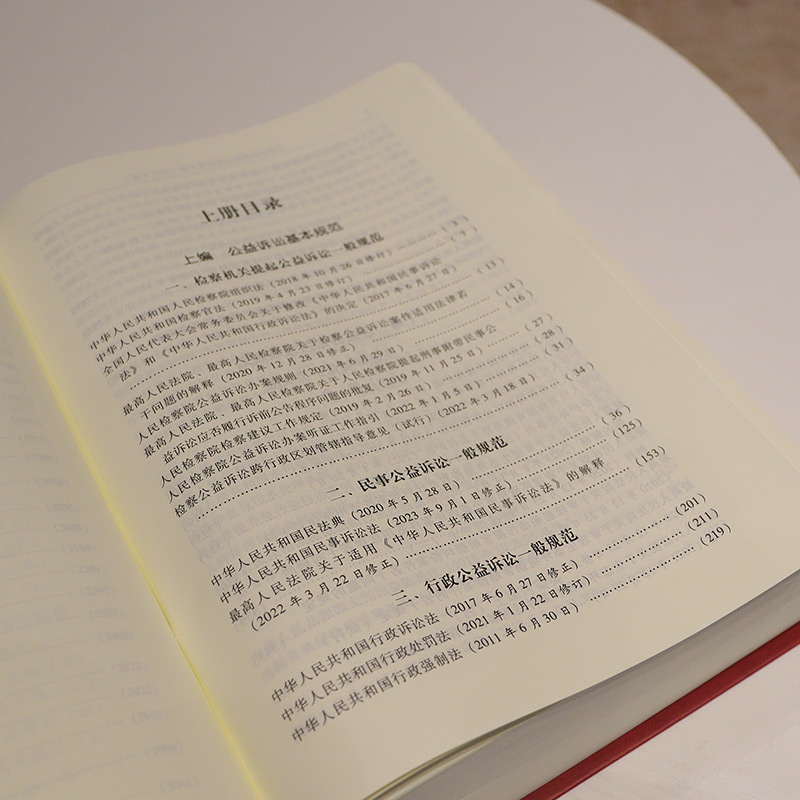 上册目录
上编 公益诉讼基本规范
一、检察机关提起公益诉讼一般规范
中华人民共和国人民检察院组织法（2018年10月26日修订）……（3）
中华人民共和国检察官法（2019年4月23日修订）……（7）
全国人民代表大会常务委员会关于修改《中华人民共和国民事诉讼
法》和《中华人民共和国行政诉讼法》的决定（2017年6月27日）
……（13）
最高人民法院、最高人民检察院关于检察公益诉讼案件适用法律若
干问题的解释（2020年12月28日修正）……（14）
人民检察院公益诉讼办案规则（2021年6月29日）……（16）
最高人民法院、最高人民检察院关于人民检察院提起刑事附带民事公
益诉讼应否履行诉前公告程序问题的批复（2019年11月25日）……（27）
人民检察院检察建议工作规定（2019年2月26日）……（28）
人民检察院公益诉讼办案听证工作指引（2022年1月5日）……（31）
检察公益诉讼跨行政区划管辖指导意见（试行）（2022年3月18日）
……（34）
二、民事公益诉讼一般规范
中华人民共和国民法典（2020年5月28日）……（36）
中华人民共和国民事诉讼法（2023年9月1日修正）……（125）
最高人民法院关于适用《中华人民共和国民事诉讼法》的解释
（2022年3月22日修正）……（153）
三、行政公益诉讼一般规范
中华人民共和国行政诉讼法（2017年6月27日修正）……（201）
中华人民共和国行政处罚法（2021年1月22日修订）……（211）
中华人民共和国行政强制法（2011年6月30日）……（219）